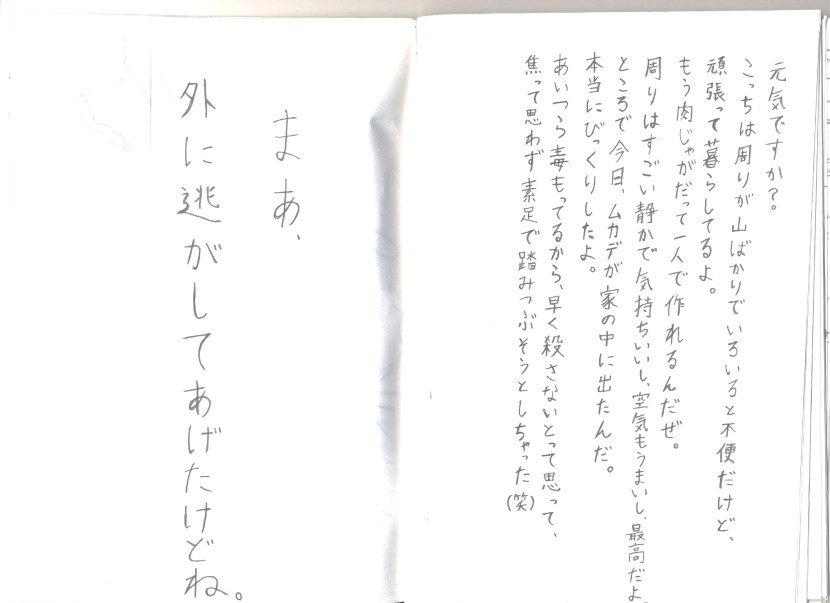 元気ですか？。
こっちは周りが山ばかりでいろいろと不便だけど、
頑張って暮らしてるよ。
もう肉じゃがだって一人で作れるんだぜ。
周りはすごい静かで気持ちいいし、空気もうまいし、最高だよ。
ところで今日、ムカデが家の中に出たんだ。
本当にびっくりしたよ。
あいつら毒もってるから、早く殺さないとって思って、
焦って思わず素足で踏みつぶそうとしちゃった(笑)
まあ、
外に逃がしてあげたけどね。